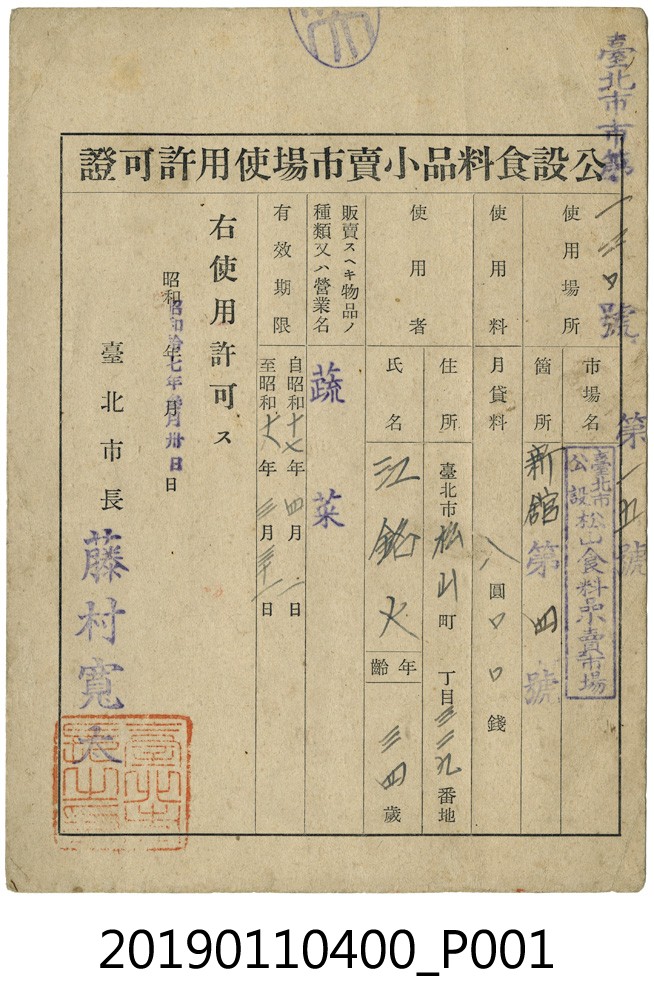 臺北市市第一三〇號
第一五號
公設食料品小賣市場使用許可證
使用場所
市場名
臺北市公設松山食料品小賣市場
箇所
新館第四號
使用料
月貸料
八圓〇〇錢
使用者
住所
臺北市松山町 丁目三二九番地
氏名
江銘火
年齡
三四歲
販賣スヘキ物品ノ
種類又ハ營業名
蔬菜
有效期限
自昭和十七年四月一日
至昭和十八年三月三十一日
右使用許可ス
昭和 年 月 日
昭和拾七年 月卅日
臺北市長
藤村寬太
20190110400_P001